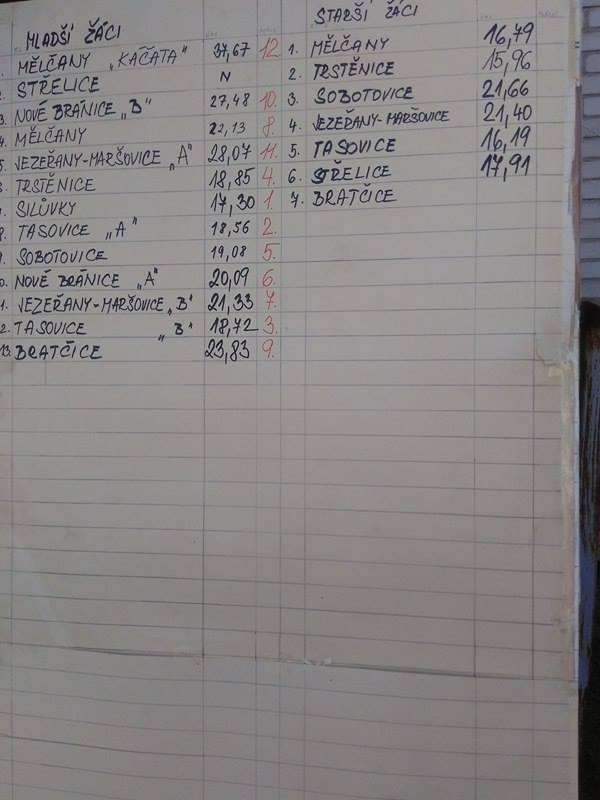 MLADŠÍ ŽÁCI
1. MĚLČANY „KÁČATA" 37,67 12
2. STŘELICE N
3. NOVÉ BRÁNICE „B" 27,48 10.
4. MĚLČANY 22,13 8.
5. JEZEŘANY-MARŠOVICE „A" 28,07 11.
6. TRSTĚNICE 18,85 4.
7. SILŮVKY 17,30 1.
8. TASOVICE „A" 18,56 2.
9. SOBOTOVICE 19,08 5.
10. NOVÉ BRÁNICE „A" 20,09 6.
11. JEZEŘANY-MARŠOVICE „B" 21,33 7.
12. TASOVICE „B" 18,72 3.
13. BRATČICE 23,83 9.
STARŠÍ ŽÁCI
1. MĚLČANY 16,79
2. TRSTĚNICE 15,96
3. SOBOTOVICE 21,66
4. JEZEŘANY-MARŠOVICE 21,40
5. TASOVICE 16,19
6. STŘELICE 17,91
7. BRATČICE